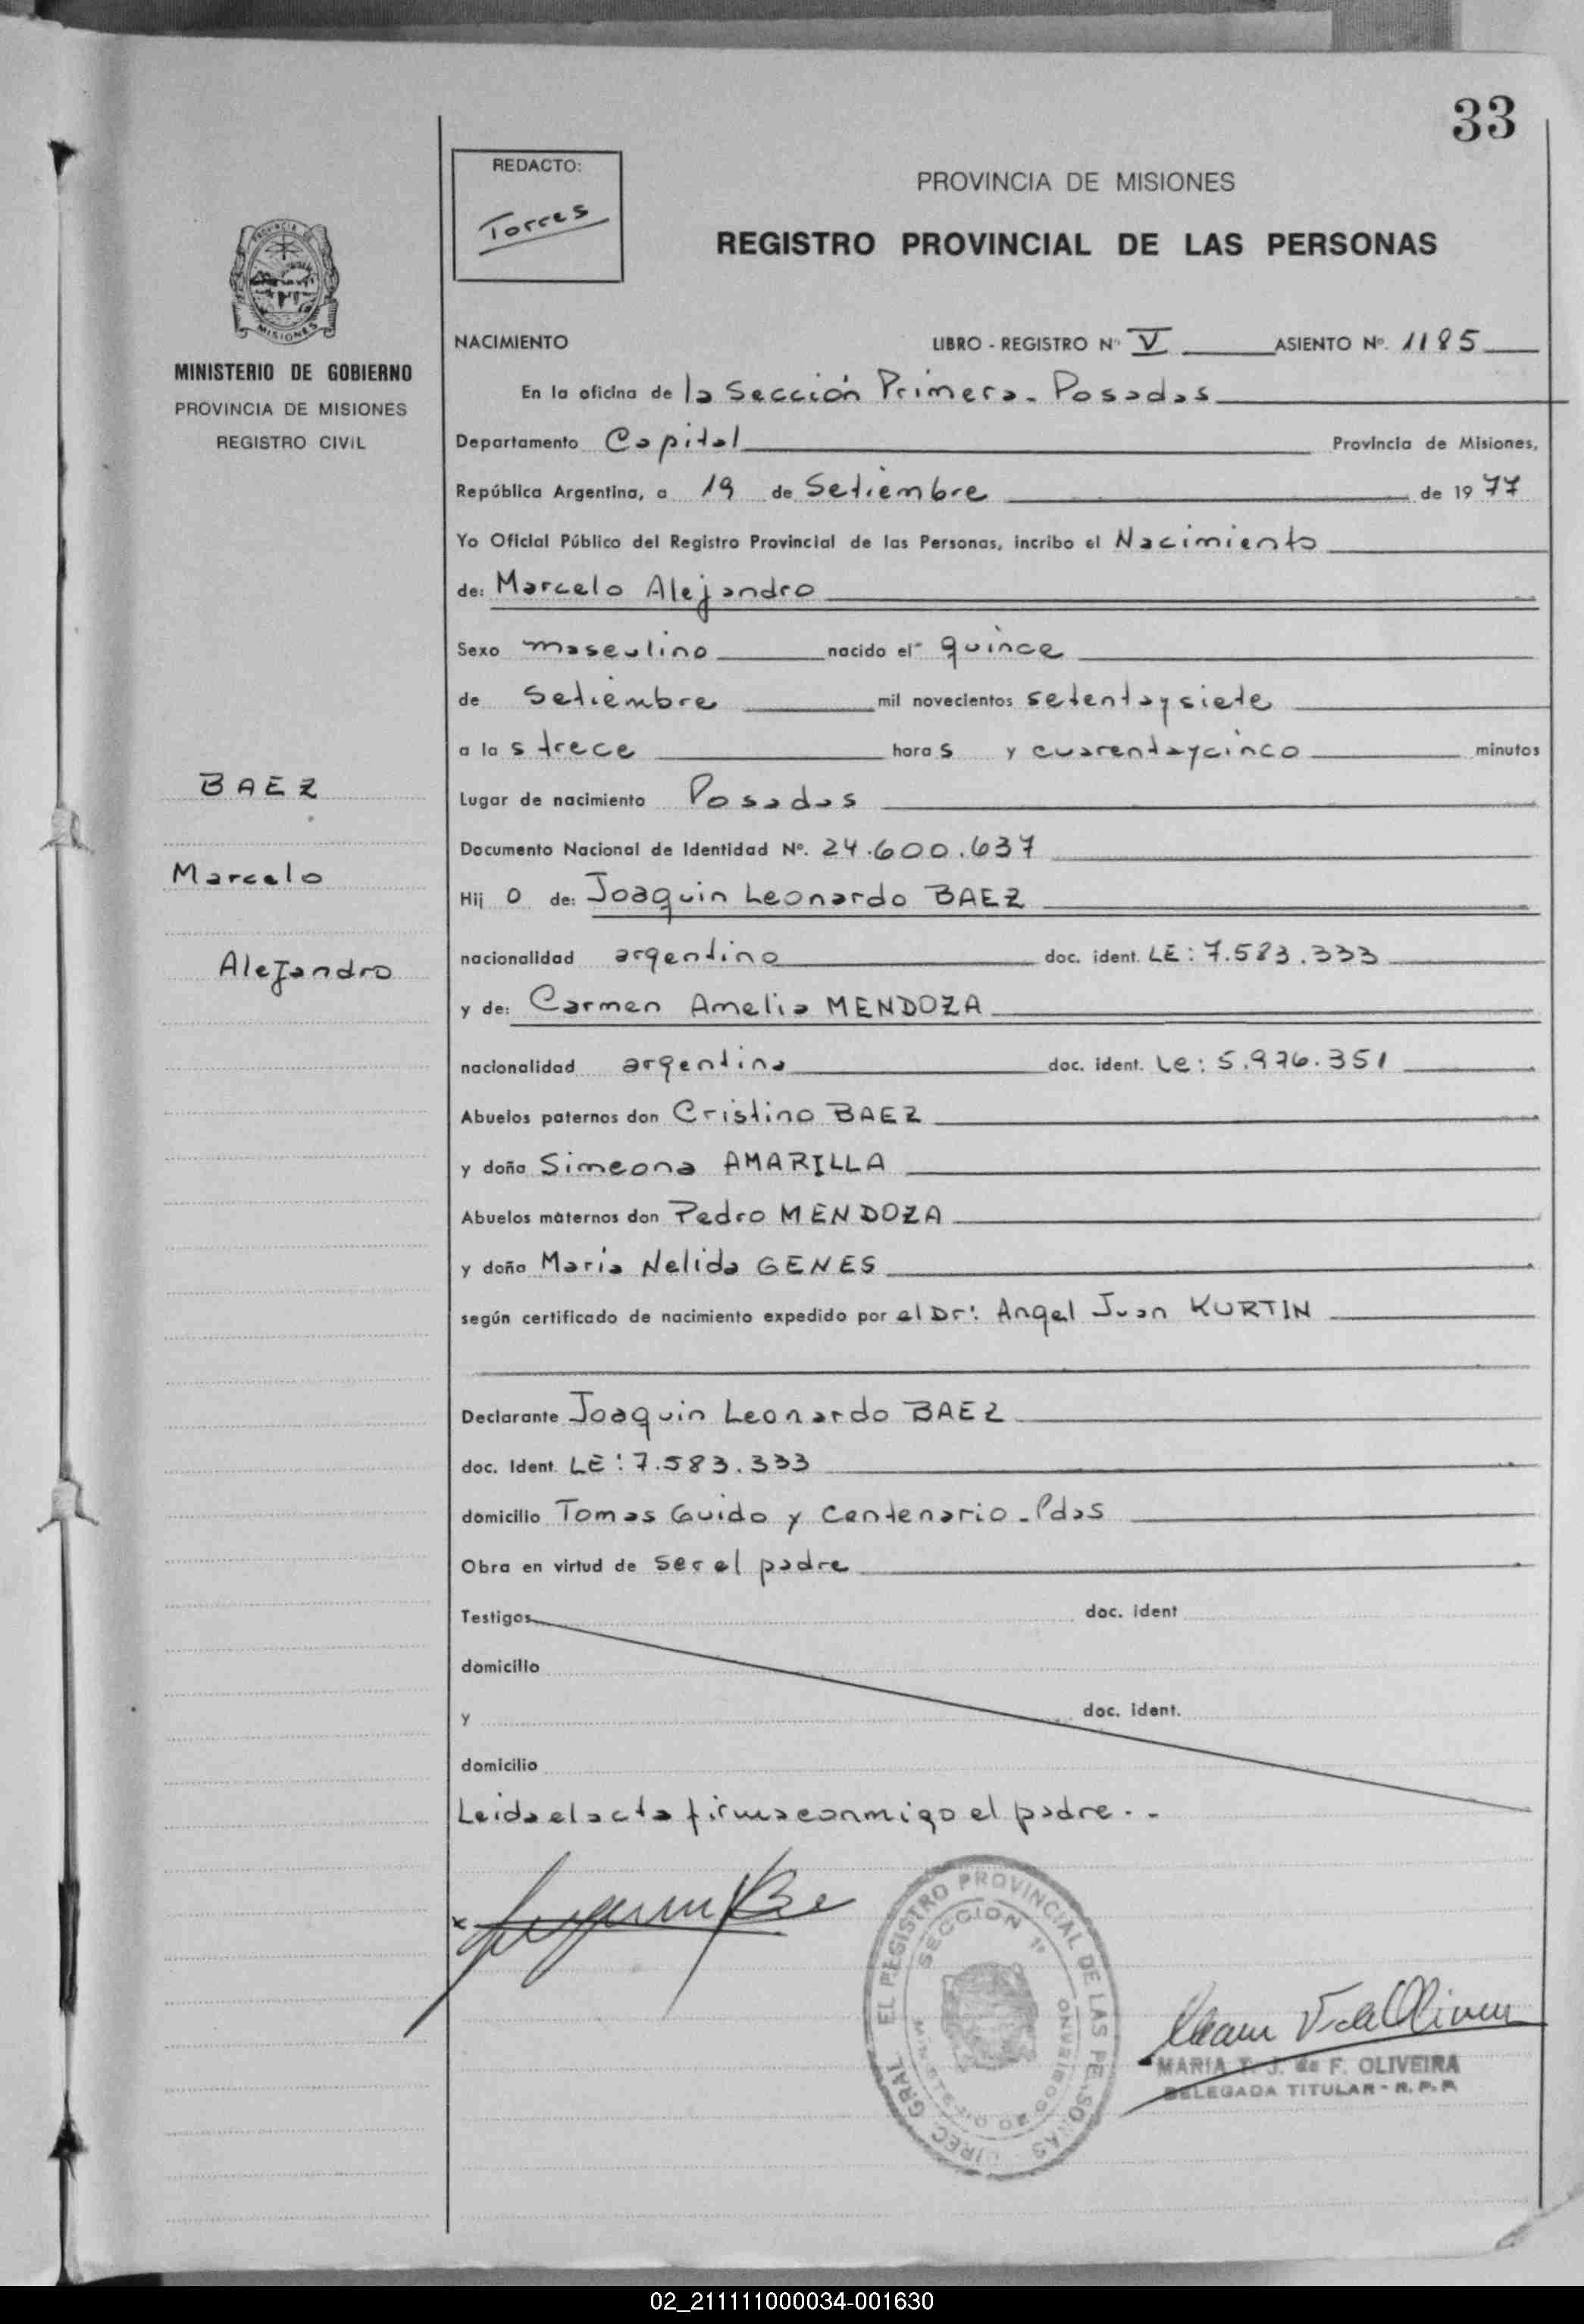 33
REDACTO:
Torres
PROVINCIA DE MISIONES
REGISTRO PROVINCIAL DE LAS PERSONAS
PROVINCIA DE
MISIONES
MINISTERIO DE GOBIERNO
PROVINCIA DE MISIONES
REGISTRO CIVIL
NACIMIENTO LIBRO - REGISTRO Nº V ASIENTO Nº. 1185
En la oficina de la Sección Primera - Posadas
Departamento Capital Provincia de Misiones,
República Argentina, a 19 de Setiembre de 1977
Yo Oficial Público del Registro Provincial de las Personas, incribo el Nacimiento
de: Marcelo Alejandro
Sexo masculino nacido el quince
de Setiembre mil novecientos setentaysiete
a las trece horas y cuarentaycinco minutos
BAEZ
Marcelo
Alejandro
Lugar de nacimiento Posadas
Documento Nacional de Identidad Nº. 24.600.637
Hijo de: Joaquin Leonardo BAEZ
nacionalidad argentino doc. ident. LE: 7.583.333
y de: Carmen Amelia MENDOZA
nacionalidad argentina doc. ident. Le: 5.976.351
Abuelos paternos don Cristino BAEZ
y doña Simeona AMARILLA
Abuelos maternos don Pedro MENDOZA
y doña Maria Nelida GENES
según certificado de nacimiento expedido por el Dr: Angel Juan KURTIN
Declarante Joaquin Leonardo BAEZ
doc. Ident. LE: 7.583.333
domicilio Tomas Guido y Centenario - Pdas
Obra en virtud de ser el padre
Testigos doc. ident
domicilio
y doc. ident.
domicilio
Leida el acta firma conmigo el padre. -
DIREC. GRAL. EL REGISTRO PROVINCIAL DE LAS PERSONAS
SECCION 1ª
MINISTERIO DE GOBIERNO
MARIA T. J. de F. OLIVEIRA
DELEGADA TITULAR - R. P. P.
02_211111000034-001630